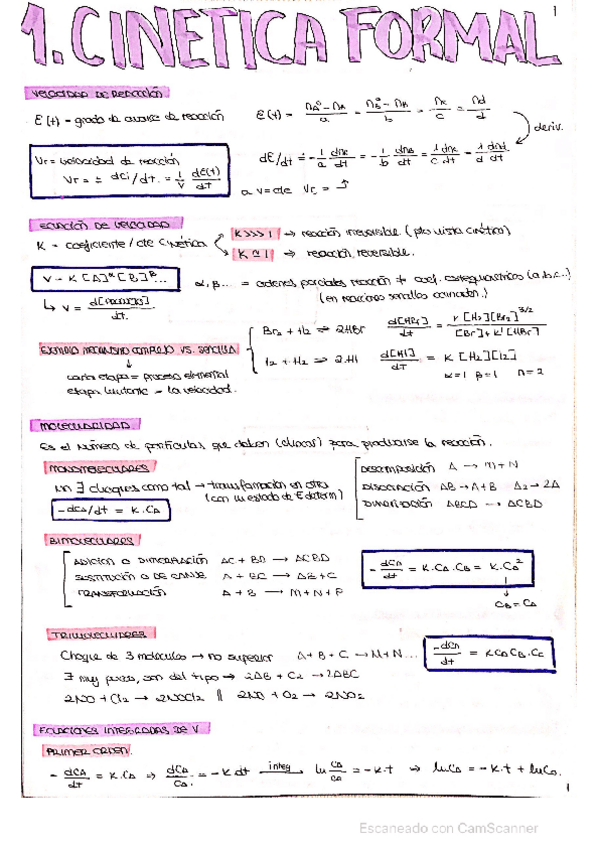 1
1. CINETICA FORMAL
VELOCIDAD DE REACCIÓN
E(t) = grado de avance de reacción
E(t) = nA° - nA / a = nB° - nB / b = nc / c = nd / d
deriv.
Vr = velocidad de reacción
Vr = ± dci/dt. = 1/V dE(t)/dt
dE/dt = -1/a dna/dt = -1/b dnb/dt = 1/c dnc/dt = 1/d dnd/dt
a v=cte Vr =
ECUACIÓN DE VELOCIDAD
K = coeficiente / cte cinética
K >>> 1 → reacción irreversible (pto vista cinético)
K ≃ 1 → reacción reversible.
V = K [A]^α [B]^β...
α, β... = ordenes parciales reacción ≠ coef. estequiométricos (a,b,c...)
(en reacciones sencillas coinciden.)
↳ V = d[producto]/dt.
EJEMPLO MECANISMO COMPLEJO VS. SENCILLA
Br2 + H2 ⇌ 2HBr d[HBr]/dt = K [H2][Br2]^3/2 / [Br] + K'[HBr]
I2 + H2 ⇌ 2HI d[HI]/dt = K [H2][I2]
α=1 β=1 n=2
cada etapa = proceso elemental
etapa limitante - la velocidad.
MOLECULARIDAD
Es el número de partículas que deben (chocar) para producirse la reacción.
MONOMOLECULARES
no ∃ choques como tal → transformación en otras
(con un estado de E determ)
-dCA/dt = K.CA
DESCOMPOSICIÓN A → M+N
DISOCIACIÓN AB → A+B A2 → 2A
ABCD → ACBD
BIMOLECULARES
ADICIÓN O DIMERIZACIÓN AC + BD → ACBD
SUSTITUCIÓN O DE CANJE A + BC → AB + C
TRANSFORMACIÓN A + B → M+N+P
-dCA/dt = K.CA.CB = K.CA²
↓
CB = CA
TRIMOLECULARES
Choque de 3 moléculas → no superior A+B+C → M+N...
-dCA/dt = KCACB.CC
∃ muy pocas, son del tipo → 2AB + C2 → 2ABC
2NO + Cl2 → 2NOCl2 || 2NO + O2 → 2NO2
ECUACIONES INTEGRADAS DE V
PRIMER ORDEN.
-dCA/dt = K.CA ⇒ dCA/CA. = -K dt integ → ln CA/CA = -K.t ⇒ lnCA = -K.t + lnCo.
1
Escaneado con CamScanner